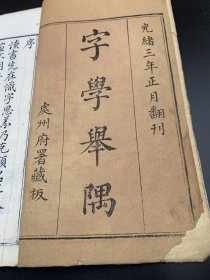 光緒三年正月翻刊
字學舉隅
處州府署藏板
序
讀書先在識字